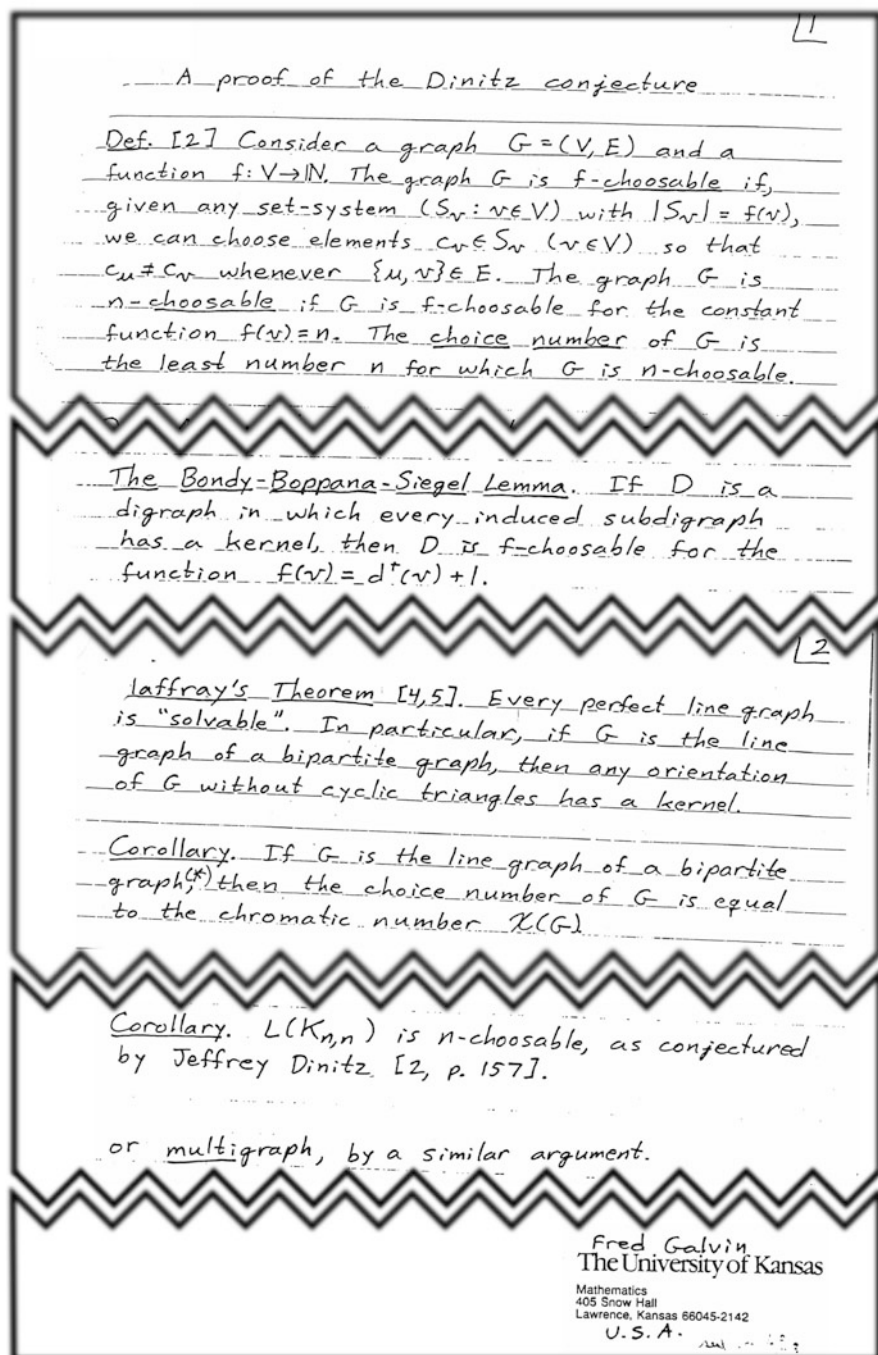 1
A proof of the Dinitz conjecture
Def. [2] Consider a graph G = (V, E) and a
function f: V→ℕ. The graph G is f-choosable if,
given any set-system (Sᵥ : v ∈ V) with |Sᵥ| = f(v),
we can choose elements cᵥ ∈ Sᵥ (v ∈ V) so that
cᵤ ≠ cᵥ whenever {u, v} ∈ E. The graph G is
n-choosable if G is f-choosable for the constant
function f(v) = n. The choice number of G is
the least number n for which G is n-choosable.
The Bondy-Boppana-Siegel Lemma. If D is a
digraph in which every induced subdigraph
has a kernel, then D is f-choosable for the
function f(v) = d⁺(v) + 1.
2
Jaffray's Theorem [4,5]. Every perfect line graph
is "solvable". In particular, if G is the line
graph of a bipartite graph, then any orientation
of G without cyclic triangles has a kernel.
Corollary. If G is the line graph of a bipartite
graph,(*) then the choice number of G is equal
to the chromatic number χ(G)
Corollary. L(Kₙ,ₙ) is n-choosable, as conjectured
by Jeffrey Dinitz [2, p. 157].
or multigraph, by a similar argument.
Fred Galvin
The University of Kansas
Mathematics
405 Snow Hall
Lawrence, Kansas 66045-2142
U.S.A.